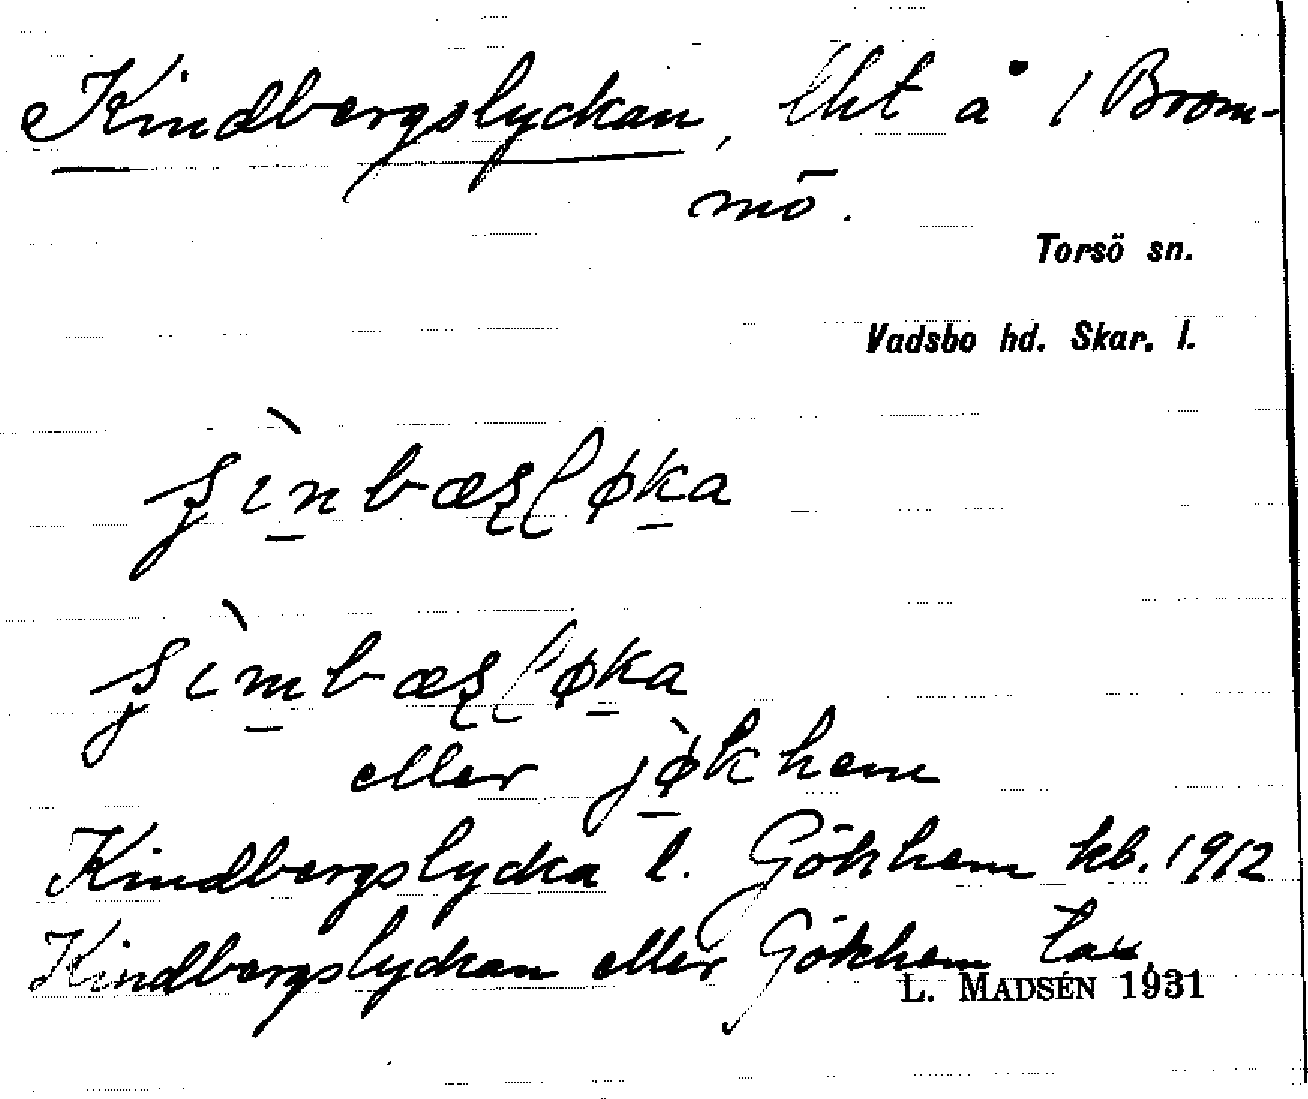 Kindbergslyckan, lht å 1 Brom-
mö.
Torsö sn.
Vadsbo hd. Skar. l.
eller jø̀khem
Kindbergslycka l. Gökhem kb. 1912
Kindbergslyckan eller Gökhem tax.
L. MADSÉN 1931